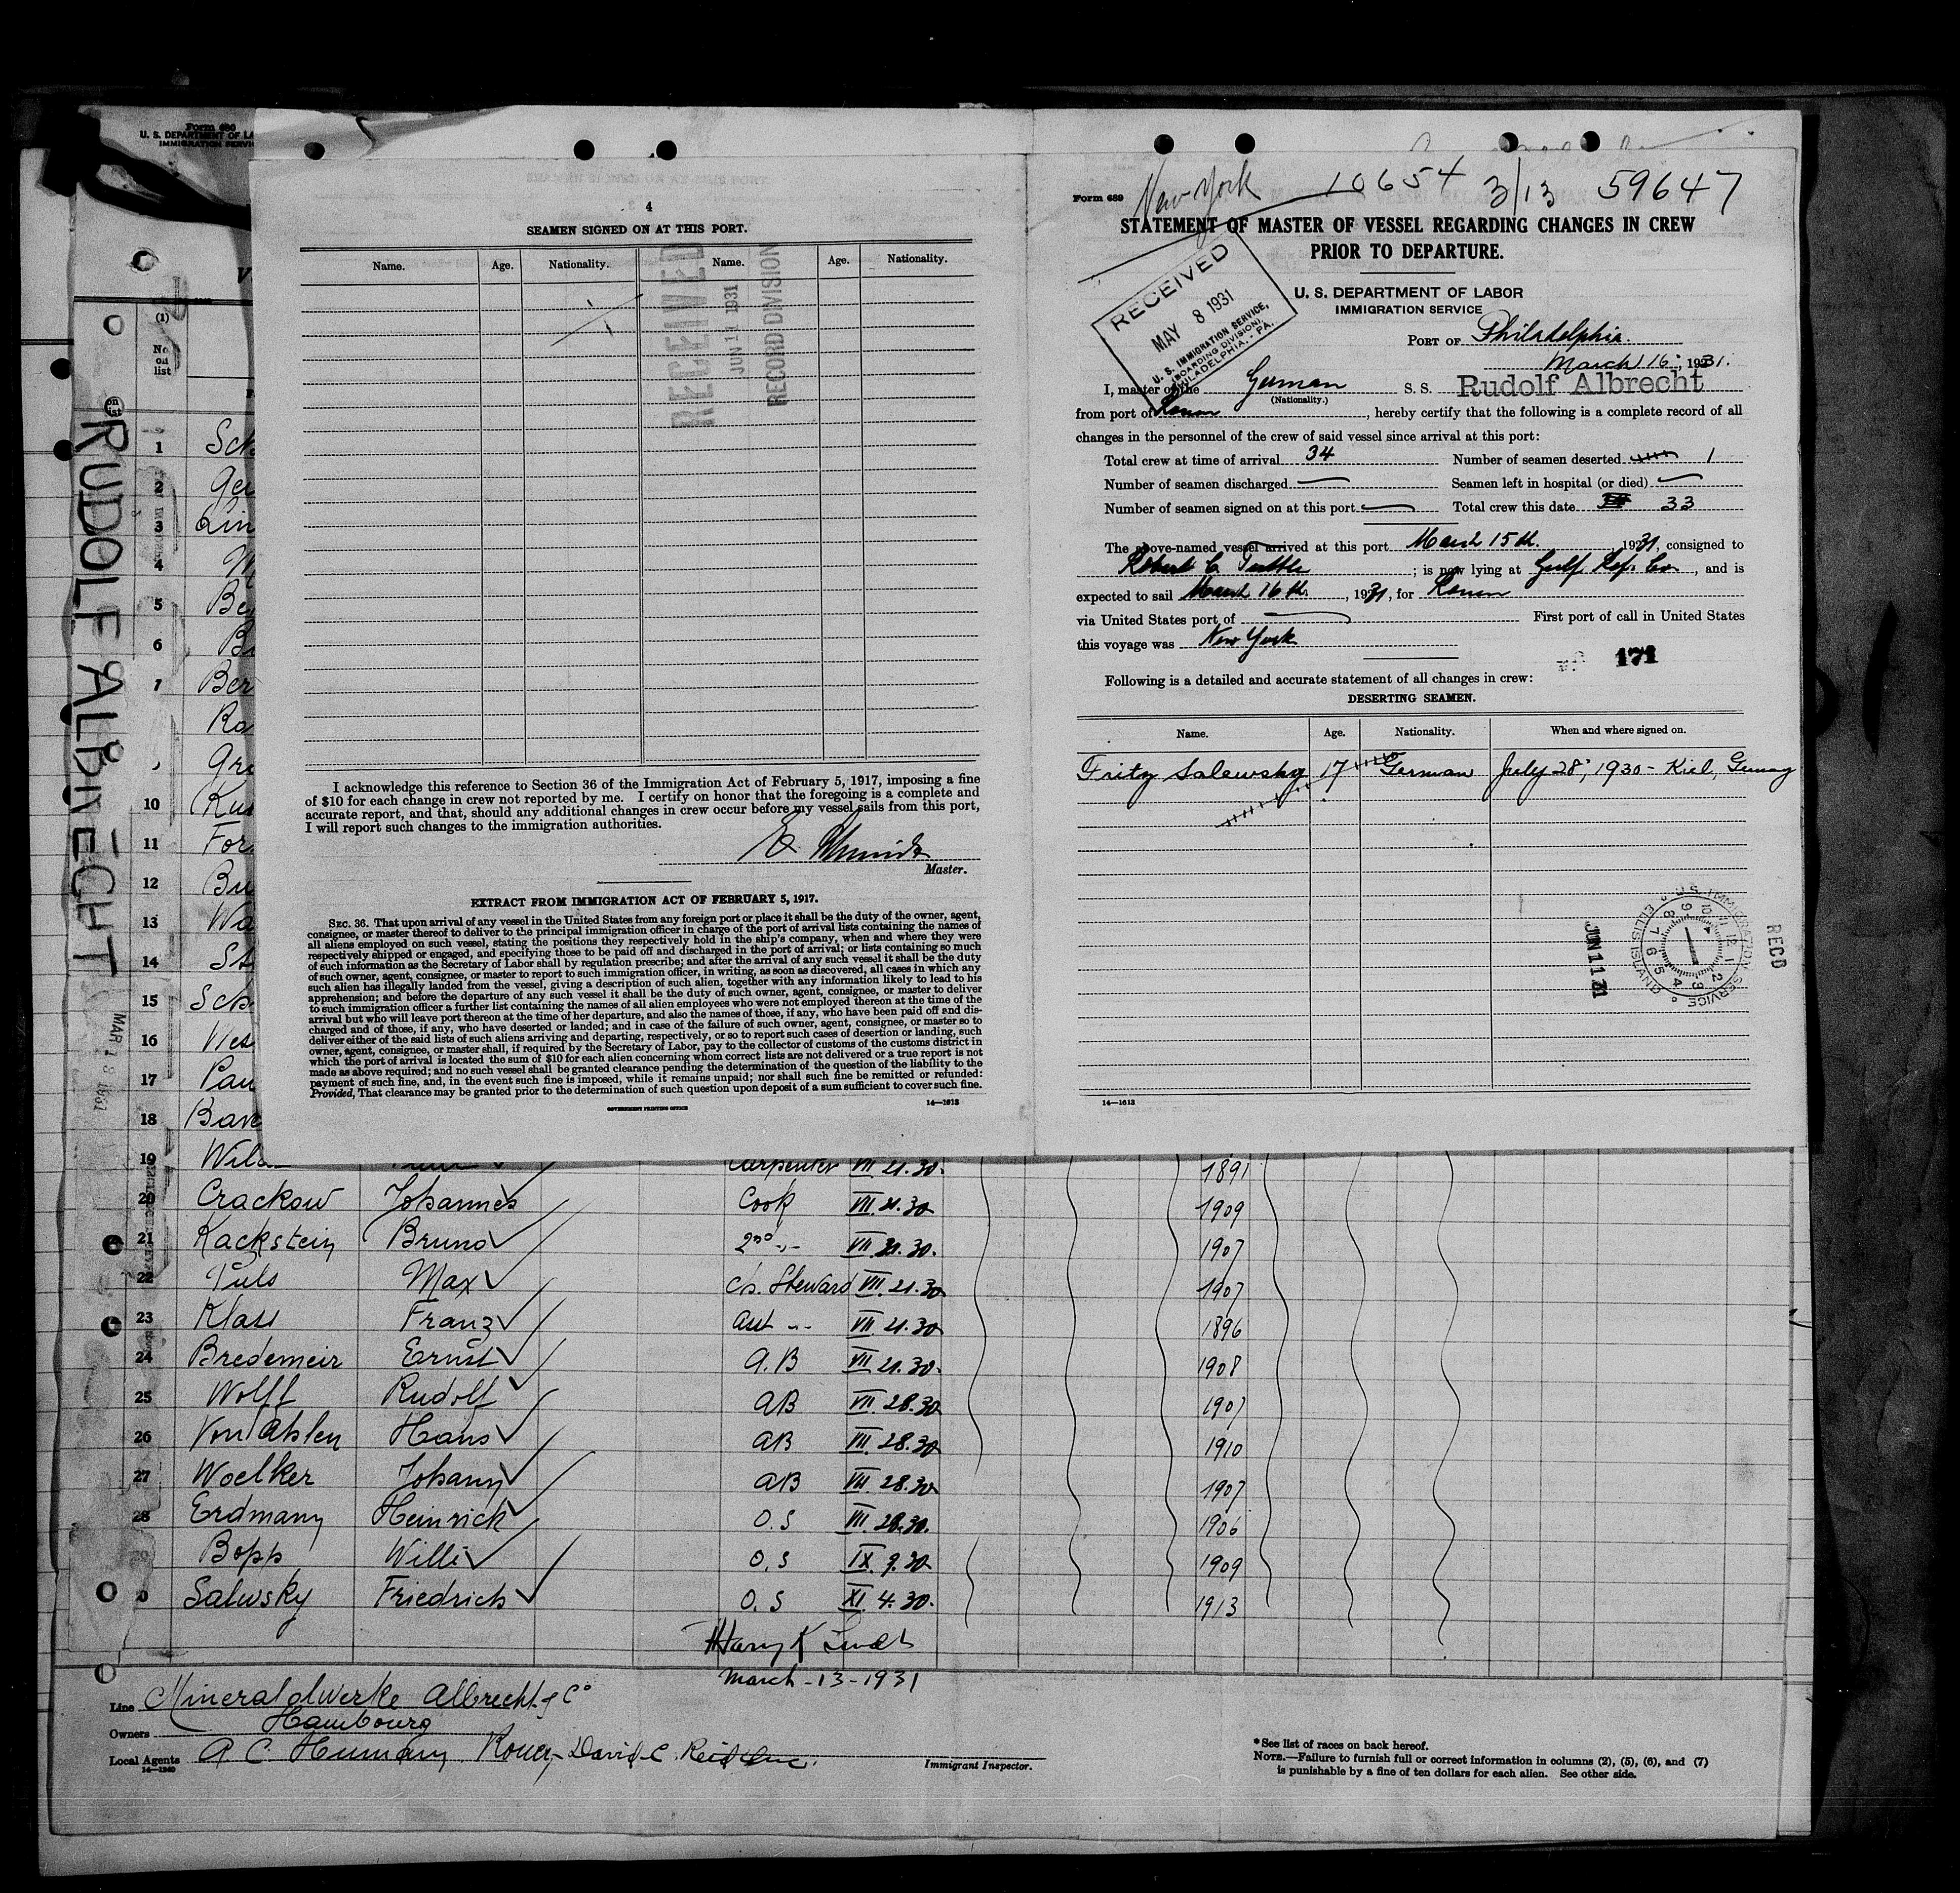 Form 680
U. S. DEPARTMENT OF LA
IMMIGRATION SERVI
RUDOLF ALBRECHT
(1)
No
on
list
4
SEAMEN SIGNED ON AT THIS PORT.
Name. Age. Nationality. Name. Age. Nationality.
RECEIVED
JUN 11 1931
RECORD DIVISION
I acknowledge this reference to Section 36 of the Immigration Act of February 5, 1917, imposing a fine
of $10 for each change in crew not reported by me. I certify on honor that the foregoing is a complete and
accurate report, and that, should any additional changes in crew occur before my vessel sails from this port,
I will report such changes to the immigration authorities.
Master.
EXTRACT FROM IMMIGRATION ACT OF FEBRUARY 5, 1917.
SEC. 36. That upon arrival of any vessel in the United States from any foreign port or place it shall be the duty of the owner, agent,
consignee, or master thereof to deliver to the principal immigration officer in charge of the port of arrival lists containing the names of
all aliens employed on such vessel, stating the positions they respectively hold in the ship's company, when and where they were
respectively shipped or engaged, and specifying those to be paid off and discharged in the port of arrival; or lists containing so much
of such information as the Secretary of Labor shall by regulation prescribe; and after the arrival of any such vessel it shall be the duty
of such owner, agent, consignee, or master to report to such immigration officer, in writing, as soon as discovered, all cases in which any
such alien has illegally landed from the vessel, giving a description of such alien, together with any information likely to lead to his
apprehension; and before the departure of any such vessel it shall be the duty of such owner, agent, consignee, or master to deliver
to such immigration officer a further list containing the names of all alien employees who were not employed thereon at the time of the
arrival but who will leave port thereon at the time of her departure, and also the names of those, if any, who have been paid off and dis-
charged and of those, if any, who have deserted or landed; and in case of the failure of such owner, agent, consignee, or master so to
deliver either of the said lists of such aliens arriving and departing, respectively, or so to report such cases of desertion or landing, such
owner, agent, consignee, or master shall, if required by the Secretary of Labor, pay to the collector of customs of the customs district in
which the port of arrival is located the sum of $10 for each alien concerning whom correct lists are not delivered or a true report is not
made as above required; and no such vessel shall be granted clearance pending the determination of the question of the liability to the
payment of such fine, and, in the event such fine is imposed, while it remains unpaid; nor shall such fine be remitted or refunded:
Provided, That clearance may be granted prior to the determination of such question upon deposit of a sum sufficient to cover such fine.
GOVERNMENT PRINTING OFFICE 14—1613
Form 689 New York 10654 3/13 59647
STATEMENT OF MASTER OF VESSEL REGARDING CHANGES IN CREW
PRIOR TO DEPARTURE.
U. S. DEPARTMENT OF LABOR
IMMIGRATION SERVICE
RECEIVED
MAY 8 1931
U. S. IMMIGRATION SERVICE,
(BOARDING DIVISION)
PHILADELPHIA, - PA.
PORT OF Philadelphia.
March 16, 1931.
I, master of the German S. S. Rudolf Albrecht
(Nationality.)
from port of Rouen, hereby certify that the following is a complete record of all
changes in the personnel of the crew of said vessel since arrival at this port:
Total crew at time of arrival 34 Number of seamen deserted 1
Number of seamen discharged — Seamen left in hospital (or died) —
Number of seamen signed on at this port — Total crew this date 33
The above-named vessel arrived at this port March 15th, 1931, consigned to
Robert C. Tuttle; is now lying at Gulf Ref. Co., and is
expected to sail March 16th, 1931, for Rouen
via United States port of — First port of call in United States
this voyage was New York
171
Following is a detailed and accurate statement of all changes in crew:
DESERTING SEAMEN.
Name. Age. Nationality. When and where signed on.
Fritz Salewsky 17 German July 28, 1930 - Kiel, Germany
U.S. IMMIGRATION SERVICE ELLIS ISLAND
JUN 11 31
RECD
14—1613
1 Sch
2 Gei
3 Lin
4 M
5 Be
6 Br
7 Ber
Ra
Gre
10 Kus
11 For
12 Bu
13 Wa
14 St
15 Sch
16 Wes
17 Pau
18 Bare
19 Wil Carpenter VII 21.30. 1891
20 Crackow Johannes Cook VII 21.30 1909
21 Kackstein Bruno 2nd -"- VII 21.30. 1907
22 Puls Max ch. Steward VII. 21.30 1907
23 Klass Franz Ast -"- VII 21.30 1896
24 Bredemeir Ernst A.B VII 21.30. 1908
25 Wolff Rudolf AB VII 28.30 1907
26 Von Ahlen Hans AB VII 28.30 1910
27 Woelker Johann AB VII 28.30 1907
28 Erdmann Heinrich O.S VII 28.30. 1906
29 Bopp Willi O.S IX 9.30 1909
0 Salwsky Friedrich O.S XI 4.30. 1913
March-13-1931
MAR 13 1931
Line Mineralölwerke Albrecht & Co
Hambourg
Owners
Local Agents A. C. Humann Rouen, David C. Reid Inc.
14—1240
Immigrant Inspector.
*See list of races on back hereof.
NOTE.—Failure to furnish full or correct information in columns (2), (5), (6), and (7)
is punishable by a fine of ten dollars for each alien. See other side.